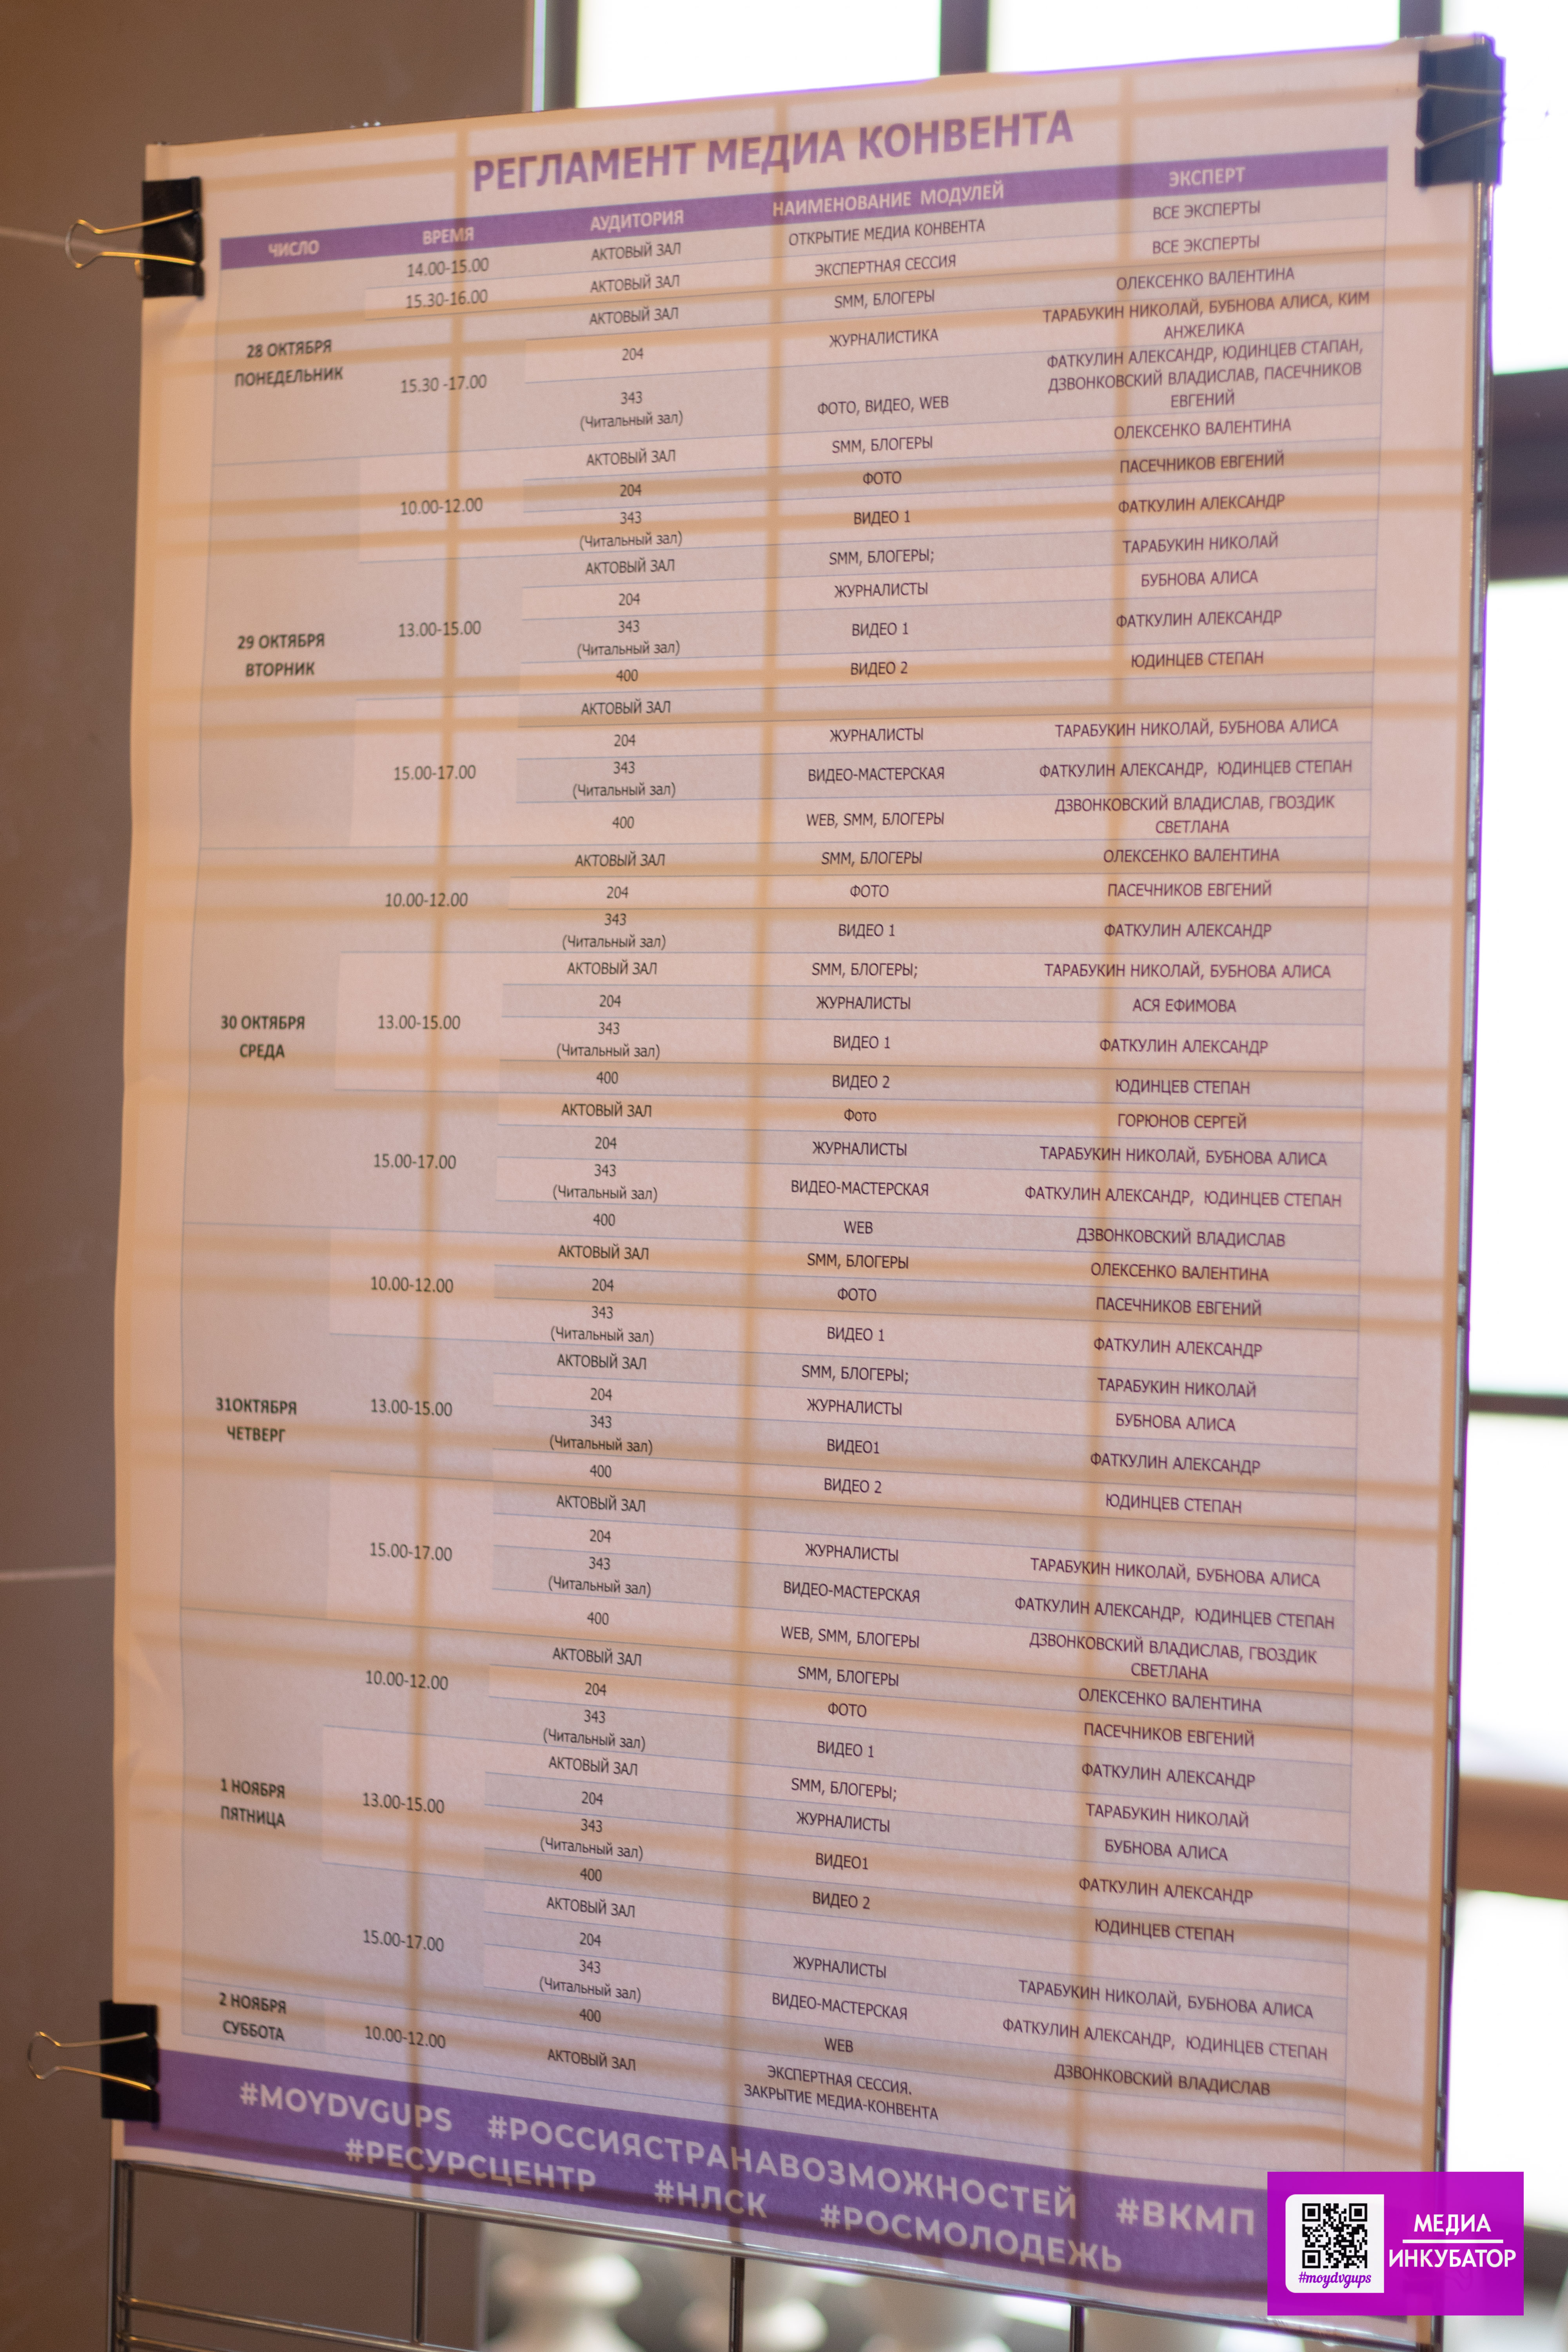 РЕГЛАМЕНТ МЕДИА КОНВЕНТА
ЧИСЛО ВРЕМЯ АУДИТОРИЯ НАИМЕНОВАНИЕ МОДУЛЕЙ ЭКСПЕРТ
28 ОКТЯБРЯ
ПОНЕДЕЛЬНИК
14.00-15.00 АКТОВЫЙ ЗАЛ ОТКРЫТИЕ МЕДИА КОНВЕНТА ВСЕ ЭКСПЕРТЫ
15.30-16.00 АКТОВЫЙ ЗАЛ ЭКСПЕРТНАЯ СЕССИЯ ВСЕ ЭКСПЕРТЫ
15.30 -17.00 АКТОВЫЙ ЗАЛ SMM, БЛОГЕРЫ ОЛЕКСЕНКО ВАЛЕНТИНА
204 ЖУРНАЛИСТИКА ТАРАБУКИН НИКОЛАЙ, БУБНОВА АЛИСА, КИМ
АНЖЕЛИКА
343
(Читальный зал) ФОТО, ВИДЕО, WEB ФАТКУЛИН АЛЕКСАНДР, ЮДИНЦЕВ СТАПАН,
ДЗВОНКОВСКИЙ ВЛАДИСЛАВ, ПАСЕЧНИКОВ
ЕВГЕНИЙ
29 ОКТЯБРЯ
ВТОРНИК
10.00-12.00 АКТОВЫЙ ЗАЛ SMM, БЛОГЕРЫ ОЛЕКСЕНКО ВАЛЕНТИНА
204 ФОТО ПАСЕЧНИКОВ ЕВГЕНИЙ
343
(Читальный зал) ВИДЕО 1 ФАТКУЛИН АЛЕКСАНДР
13.00-15.00 АКТОВЫЙ ЗАЛ SMM, БЛОГЕРЫ; ТАРАБУКИН НИКОЛАЙ
204 ЖУРНАЛИСТЫ БУБНОВА АЛИСА
343
(Читальный зал) ВИДЕО 1 ФАТКУЛИН АЛЕКСАНДР
400 ВИДЕО 2 ЮДИНЦЕВ СТЕПАН
15.00-17.00 АКТОВЫЙ ЗАЛ
204 ЖУРНАЛИСТЫ ТАРАБУКИН НИКОЛАЙ, БУБНОВА АЛИСА
343
(Читальный зал) ВИДЕО-МАСТЕРСКАЯ ФАТКУЛИН АЛЕКСАНДР, ЮДИНЦЕВ СТЕПАН
400 WEB, SMM, БЛОГЕРЫ ДЗВОНКОВСКИЙ ВЛАДИСЛАВ, ГВОЗДИК
СВЕТЛАНА
30 ОКТЯБРЯ
СРЕДА
10.00-12.00 АКТОВЫЙ ЗАЛ SMM, БЛОГЕРЫ ОЛЕКСЕНКО ВАЛЕНТИНА
204 ФОТО ПАСЕЧНИКОВ ЕВГЕНИЙ
343
(Читальный зал) ВИДЕО 1 ФАТКУЛИН АЛЕКСАНДР
13.00-15.00 АКТОВЫЙ ЗАЛ SMM, БЛОГЕРЫ; ТАРАБУКИН НИКОЛАЙ, БУБНОВА АЛИСА
204 ЖУРНАЛИСТЫ АСЯ ЕФИМОВА
343
(Читальный зал) ВИДЕО 1 ФАТКУЛИН АЛЕКСАНДР
400 ВИДЕО 2 ЮДИНЦЕВ СТЕПАН
15.00-17.00 АКТОВЫЙ ЗАЛ Фото ГОРЮНОВ СЕРГЕЙ
204 ЖУРНАЛИСТЫ ТАРАБУКИН НИКОЛАЙ, БУБНОВА АЛИСА
343
(Читальный зал) ВИДЕО-МАСТЕРСКАЯ ФАТКУЛИН АЛЕКСАНДР, ЮДИНЦЕВ СТЕПАН
400 WEB ДЗВОНКОВСКИЙ ВЛАДИСЛАВ
31ОКТЯБРЯ
ЧЕТВЕРГ
10.00-12.00 АКТОВЫЙ ЗАЛ SMM, БЛОГЕРЫ ОЛЕКСЕНКО ВАЛЕНТИНА
204 ФОТО ПАСЕЧНИКОВ ЕВГЕНИЙ
343
(Читальный зал) ВИДЕО 1 ФАТКУЛИН АЛЕКСАНДР
13.00-15.00 АКТОВЫЙ ЗАЛ SMM, БЛОГЕРЫ; ТАРАБУКИН НИКОЛАЙ
204 ЖУРНАЛИСТЫ БУБНОВА АЛИСА
343
(Читальный зал) ВИДЕО1 ФАТКУЛИН АЛЕКСАНДР
400 ВИДЕО 2 ЮДИНЦЕВ СТЕПАН
15.00-17.00 АКТОВЫЙ ЗАЛ
204 ЖУРНАЛИСТЫ ТАРАБУКИН НИКОЛАЙ, БУБНОВА АЛИСА
343
(Читальный зал) ВИДЕО-МАСТЕРСКАЯ ФАТКУЛИН АЛЕКСАНДР, ЮДИНЦЕВ СТЕПАН
400 WEB, SMM, БЛОГЕРЫ ДЗВОНКОВСКИЙ ВЛАДИСЛАВ, ГВОЗДИК
СВЕТЛАНА
1 НОЯБРЯ
ПЯТНИЦА
10.00-12.00 АКТОВЫЙ ЗАЛ SMM, БЛОГЕРЫ ОЛЕКСЕНКО ВАЛЕНТИНА
204 ФОТО ПАСЕЧНИКОВ ЕВГЕНИЙ
343
(Читальный зал) ВИДЕО 1 ФАТКУЛИН АЛЕКСАНДР
13.00-15.00 АКТОВЫЙ ЗАЛ SMM, БЛОГЕРЫ; ТАРАБУКИН НИКОЛАЙ
204 ЖУРНАЛИСТЫ БУБНОВА АЛИСА
343
(Читальный зал) ВИДЕО1 ФАТКУЛИН АЛЕКСАНДР
400 ВИДЕО 2 ЮДИНЦЕВ СТЕПАН
15.00-17.00 АКТОВЫЙ ЗАЛ
204 ЖУРНАЛИСТЫ ТАРАБУКИН НИКОЛАЙ, БУБНОВА АЛИСА
343
(Читальный зал) ВИДЕО-МАСТЕРСКАЯ ФАТКУЛИН АЛЕКСАНДР, ЮДИНЦЕВ СТЕПАН
400 WEB ДЗВОНКОВСКИЙ ВЛАДИСЛАВ
2 НОЯБРЯ
СУББОТА
10.00-12.00 АКТОВЫЙ ЗАЛ ЭКСПЕРТНАЯ СЕССИЯ.
ЗАКРЫТИЕ МЕДИА-КОНВЕНТА
#MOYDVGUPS #РОССИЯСТРАНАВОЗМОЖНОСТЕЙ #ВКМП
#РЕСУРСЦЕНТР #НЛСК #РОСМОЛОДЕЖЬ
МЕДИА
ИНКУБАТОР
#moydvgups